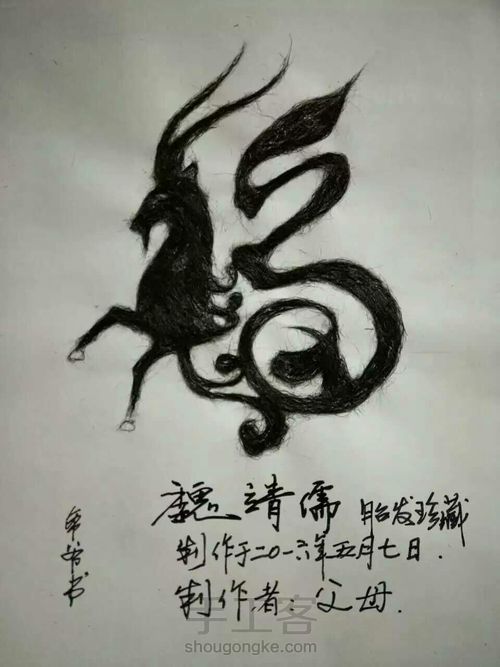 魏靖儒 胎发珍藏
制作于二〇一六年五月七日.
制作者:父母.
手工客
shougongke.com